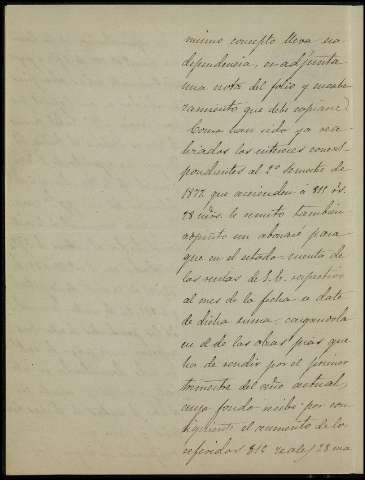 mismo concepto lleva esa
dependencia, en adjunta
una nota del folio y encabe-
zamiento que debe copiarse.
Como han sido ya rea-
lizados los intereses corres-
pondientes al 2º semestre de
1877 que ascienden a 812 rs.
28 mrs. le remito tambien
adjunto un abonaré para
que en el estado-cuenta de
las rentas de S. E. respectivo
al mes de la fecha se date
de dicha suma, cargandola
en el de las obras pias que
ha de rendir por el primer
trimestre del año actual,
cuyo fondo recibe por con-
siguiente el aumento de los
referidos 812 reales 28 ma